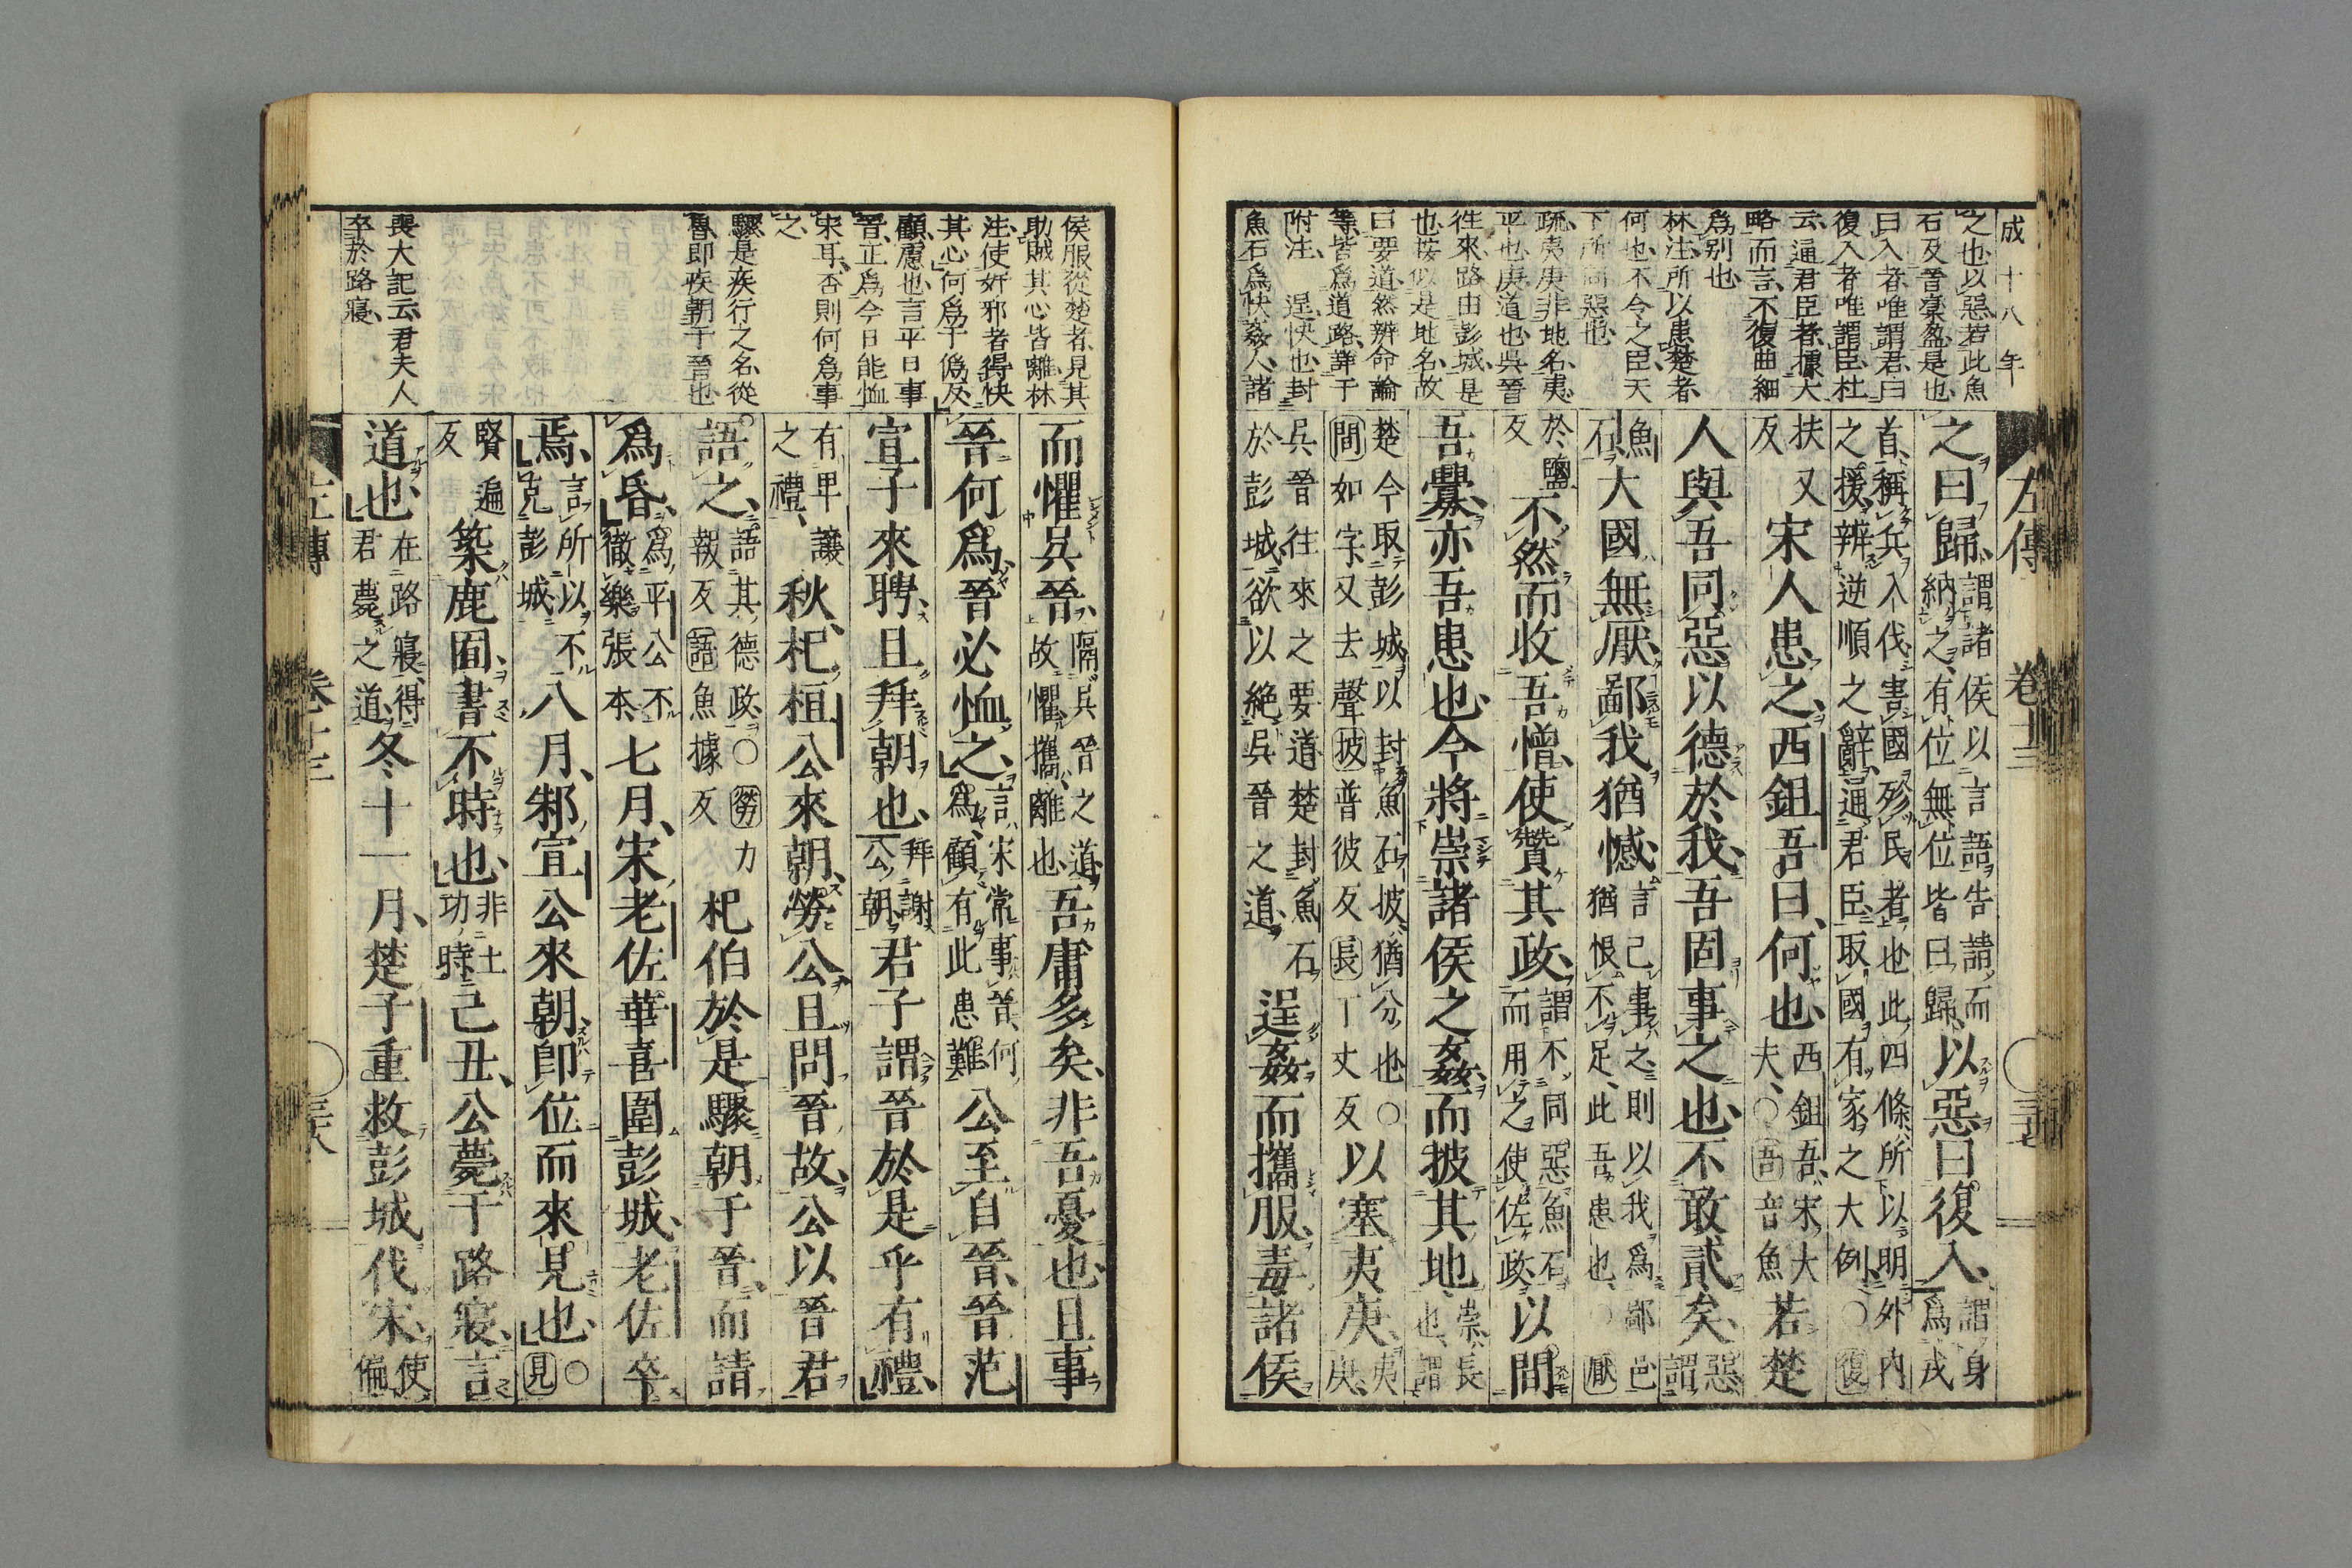 成十八年
之也以惡若此魚
石及晉欒盈是也
曰入者唯謂君曰
復入者唯謂臣杜
云通君臣者據大
略而言不復曲細
爲別也
林注所以患楚者
何也不令之臣天
下所同惡也
疏夷庚非地名夷
平也庚道也吳晉
往來路由彭城是
也按似是地名故
曰要道然辨命論
等皆爲道路詳于
附注 逞快也封
魚石爲快姦人諸
左傳 卷十三
之曰歸
謂諸侯以言語告請而
納之有位無位皆曰歸
以惡曰復入
謂身
爲戎
首稱兵入伐害國殄民者也此四條所以明外內
之援辨逆順之辭通君臣取國有家之大例○復
扶又
反
宋人患之西鉏吾曰何也
西鉏吾宋大
夫○吾音魚
若楚
人與吾同惡以德於我吾固事之也不敢貳矣
惡
謂
魚
石
大國無厭鄙我猶憾
言己事之則以我爲鄙邑
猶恨不足此吾患也○厭
於鹽
反
不然而收吾憎使贊其政
謂不同惡魚石
而用之使佐政
以間
吾釁亦吾患也今將崇諸侯之姦而披其地
崇長
也謂
楚今取彭城以封魚石披猶分也○
間如字又去聲披普彼反長丁丈反
以塞夷庚
夷
庚
吳晉往來之要道楚封魚石
於彭城欲以絶吳晉之道
逞姦而攜服毒諸侯
侯服從楚者見其
助賊其心皆離林
注使奸邪者得快
其心何爲于僞反
顧慮也言平日事
晉正爲今日能恤
宋耳否則何爲事
之
驟是疾行之名從
魯即疾朝于晉也
喪大記云君夫人
卒於路寢
而懼吳晉
隔吳晉之道
故懼攜離也
吾庸多矣非吾憂也且事
晉何爲晉必恤之
言宋常事晉何
爲顧有此患難
公至自晉晉范
宣子來聘且拜朝也
拜謝
公朝
君子謂晉於是乎有禮
有卑讓
之禮
秋杞桓公來朝勞公且問晉故公以晉君
語之
語其德政○勞力
報反語魚據反
杞伯於是驟朝于晉而請
爲昏
爲平公不
徹樂張本
七月宋老佐華喜圍彭城老佐卒
焉
言所以不
克彭城
八月邾宣公來朝卽位而來見也
○
見
賢遍
反
築鹿囿書不時也
非土
功時
己丑公薨于路寢言
道也
在路寢得
君薨之道
冬十一月楚子重救彭城伐宋
使
偏
左傳 卷十三